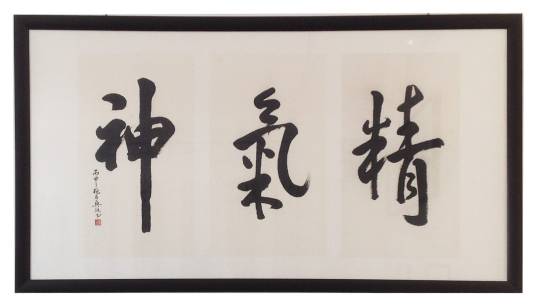 精氣神
丙申